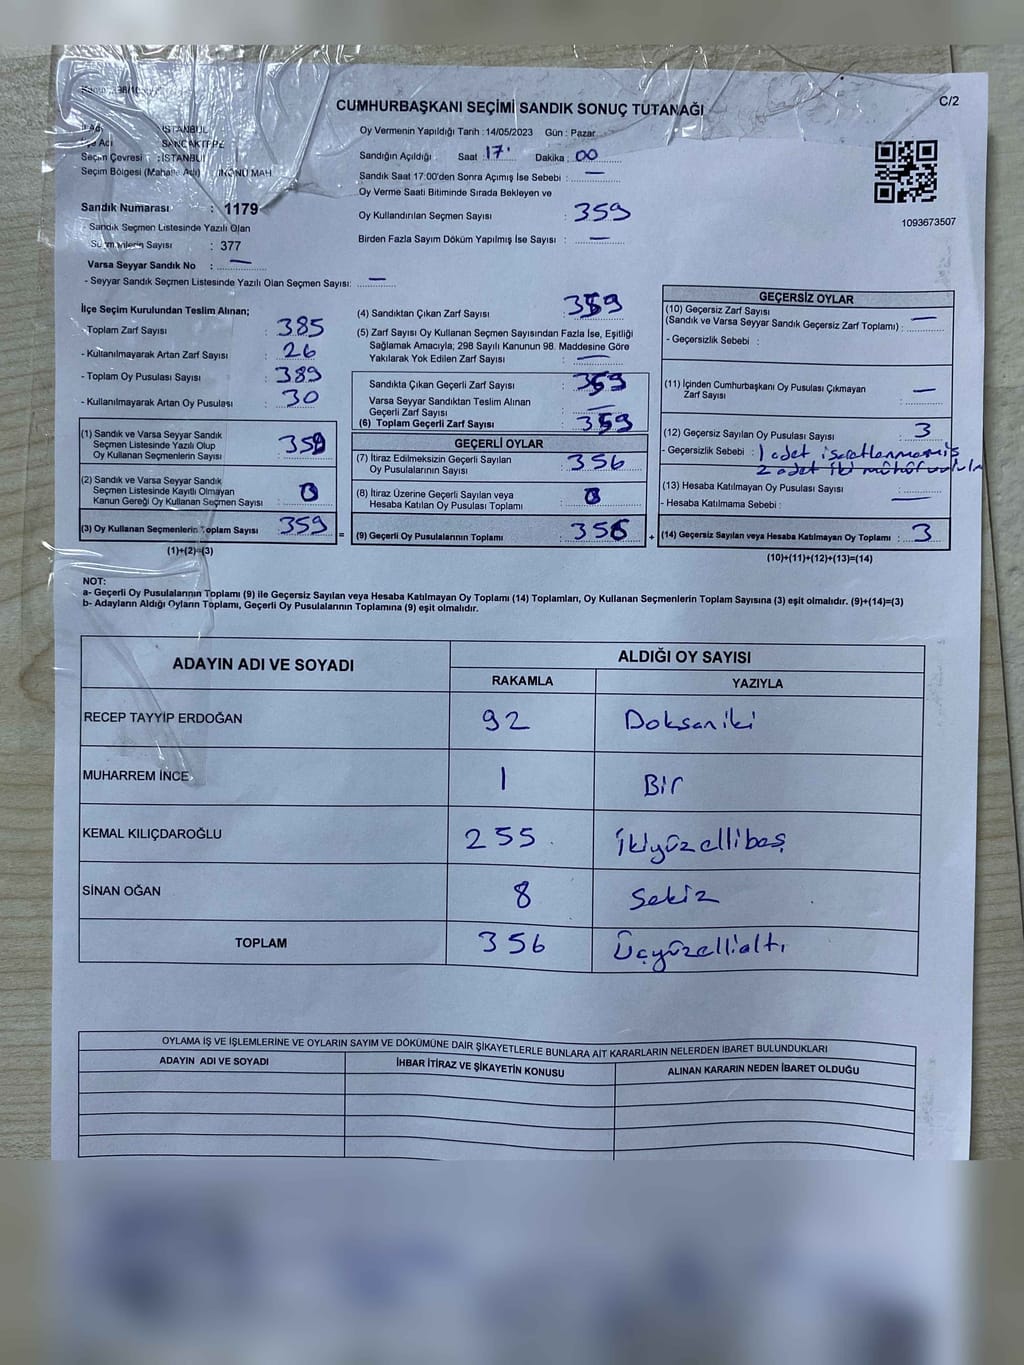 C/2
CUMHURBAŞKANI SEÇİMİ SANDIK SONUÇ TUTANAĞI
İl Adı : İSTANBUL
İlçe Adı : SANCAKTEPE
Seçim Çevresi : İSTANBUL
Seçim Bölgesi (Mahalle Adı) İNÖNÜ MAH
Oy Vermenin Yapıldığı Tarih : 14/05/2023 Gün : Pazar
Sandığın Açıldığı Saat 17 Dakika : 00
Sandık Saat 17:00'den Sonra Açımış İse Sebebi : —
Oy Verme Saati Bitiminde Sırada Bekleyen ve
Oy Kullandırılan Seçmen Sayısı : 359
Birden Fazla Sayım Döküm Yapılmış İse Sayısı : —
1093673507
Sandık Numarası : 1179
Sandık Seçmen Listesinde Yazılı Olan
Seçmenlerin Sayısı : 377
Varsa Seyyar Sandık No : —
- Seyyar Sandık Seçmen Listesinde Yazılı Olan Seçmen Sayısı: —
İlçe Seçim Kurulundan Teslim Alınan;
- Toplam Zarf Sayısı : 385
- Kullanılmayarak Artan Zarf Sayısı : 26
- Toplam Oy Pusulası Sayısı : 389
- Kullanılmayarak Artan Oy Pusulası : 30
(1) Sandık ve Varsa Seyyar Sandık
Seçmen Listesinde Yazılı Olup
Oy Kullanan Seçmenlerin Sayısı : 359
(2) Sandık ve Varsa Seyyar Sandık
Seçmen Listesinde Kayıtlı Olmayan
Kanun Gereği Oy Kullanan Seçmen Sayısı : 0
(3) Oy Kullanan Seçmenlerin Toplam Sayısı : 359
(1)+(2)=(3)
(4) Sandıktan Çıkan Zarf Sayısı : 359
(5) Zarf Sayısı Oy Kullanan Seçmen Sayısından Fazla İse, Eşitliği
Sağlamak Amacıyla; 298 Sayılı Kanunun 98. Maddesine Göre
Yakılarak Yok Edilen Zarf Sayısı : —
Sandıkta Çıkan Geçerli Zarf Sayısı : 359
Varsa Seyyar Sandıktan Teslim Alınan
Geçerli Zarf Sayısı : —
(6) Toplam Geçerli Zarf Sayısı : 359
GEÇERLİ OYLAR
(7) İtiraz Edilmeksizin Geçerli Sayılan
Oy Pusulalarının Sayısı : 356
(8) İtiraz Üzerine Geçerli Sayılan veya
Hesaba Katılan Oy Pusulası Toplamı : 0
= (9) Geçerli Oy Pusulalarının Toplamı : 356 +
GEÇERSİZ OYLAR
(10) Geçersiz Zarf Sayısı
(Sandık ve Varsa Seyyar Sandık Geçersiz Zarf Toplamı) : —
- Geçersizlik Sebebi :
(11) İçinden Cumhurbaşkanı Oy Pusulası Çıkmayan
Zarf Sayısı : —
(12) Geçersiz Sayılan Oy Pusulası Sayısı : 3
- Geçersizlik Sebebi : 1 adet işaretlenmemiş
2 adet iki mühür
(13) Hesaba Katılmayan Oy Pusulası Sayısı : —
- Hesaba Katılmama Sebebi :
(14) Geçersiz Sayılan veya Hesaba Katılmayan Oy Toplamı : 3
(10)+(11)+(12)+(13)=(14)
NOT:
a- Geçerli Oy Pusulalarının Toplamı (9) ile Geçersiz Sayılan veya Hesaba Katılmayan Oy Toplamı (14) Toplamları, Oy Kullanan Seçmenlerin Toplam Sayısına (3) eşit olmalıdır. (9)+(14)=(3)
b- Adayların Aldığı Oyların Toplamı, Geçerli Oy Pusulalarının Toplamına (9) eşit olmalıdır.
ADAYIN ADI VE SOYADI ALDIĞI OY SAYISI
RAKAMLA YAZIYLA
RECEP TAYYİP ERDOĞAN 92 Doksaniki
MUHARREM İNCE 1 Bir
KEMAL KILIÇDAROĞLU 255 İkiyüzellibeş
SİNAN OĞAN 8 Sekiz
TOPLAM 356 Üçyüzellialtı
OYLAMA İŞ VE İŞLEMLERİNE VE OYLARIN SAYIM VE DÖKÜMÜNE DAİR ŞİKAYETLERLE BUNLARA AİT KARARLARIN NELERDEN İBARET BULUNDUKLARI
ADAYIN ADI VE SOYADI İHBAR İTİRAZ VE ŞİKAYETİN KONUSU ALINAN KARARIN NEDEN İBARET OLDUĞU